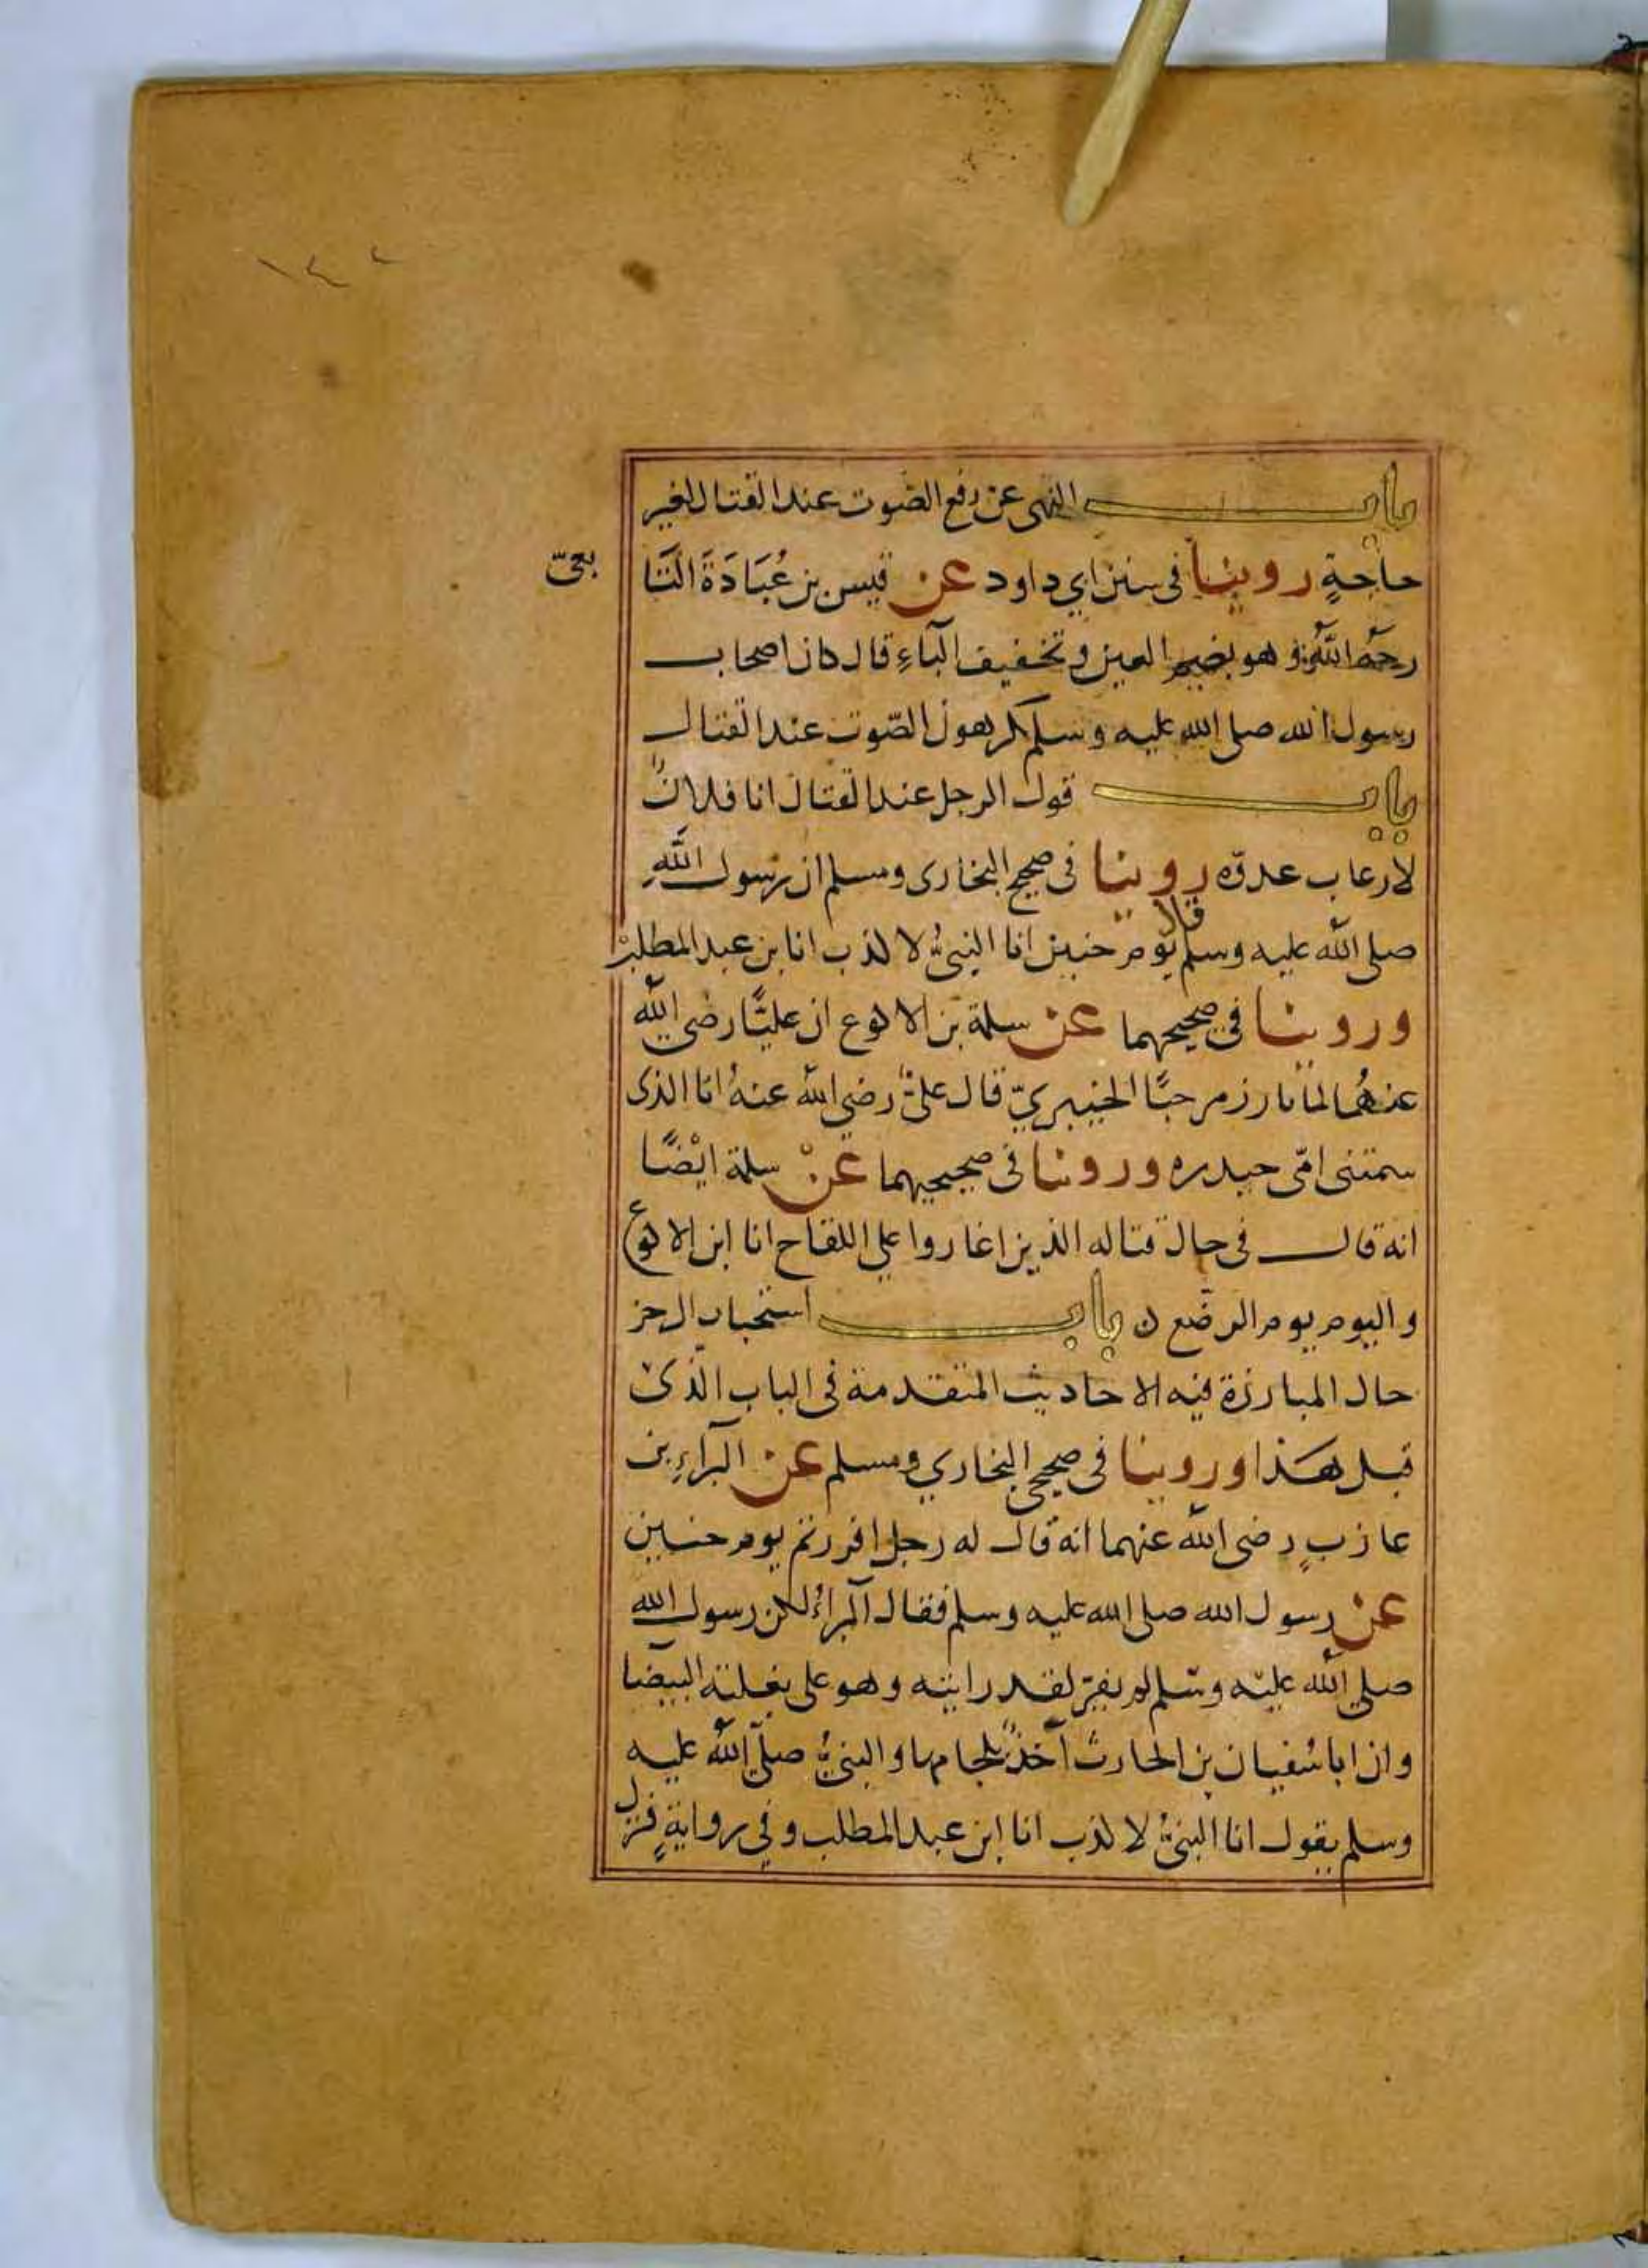 ١٤٢
باب النهى عن رفع الصوت عند القتال لغير
حاجةٍ روينا فى سنن ابي داود عن قيس بن عُبَادَةَ التَّا
بعىّ
رحمه الله وهو بضم العين وتخفيف الباءِ قال كان اصحاب
رسول الله صلى الله عليه وسلم كرهون الصّوت عند القتال
باب قول الرجل عند القتال انا فلانٌ
لارعاب عدوّه روينا فى صحيح البخارى ومسلم ان رسول اللهِ
صلى الله عليه وسلم قال يوم حنين انا النبىُّ لا كذب انا بن عبد المطلبْ
وروينا في صحيحهما عن سلمة بن الاكوع ان عليًّا رضي الله
عنهُما لما بارز مرحبًا الخيبريّ قال علىٌّ رضي الله عنهُ انا الذى
سمتنى امّى حيدره وروينا فى صحيحيهما عنْ سلمة ايْضًا
انه قال فى حال قتاله الذين اغاروا على اللقاح انا ابن الاكوع
واليوم يوم الرضّع ن باب استحباب الرجز
حال المبارزة فيه الاحاديث المتقدمة فى الباب الّذى
قبل هَذا وروينا فى صحيحي البخاري ومسلم عن البراءِ بن
عازبٍ رضى الله عنهما انه قال له رجل افررتم يوم حنين
عن رسول الله صلى الله عليه وسلم فقال البراءُ لكن رسول الله
صلى الله عليه وسلم لم يفرّ لقد رايته وهو على بغلته البيضا
وان ابا سُفيان بن الحارث آخذٌ بلجامها والنبيُّ صلّى الله عليه
وسلم يقول انا النبىُّ لا كذب انا ابن عبد المطلب وفي روايةٍ فنزل